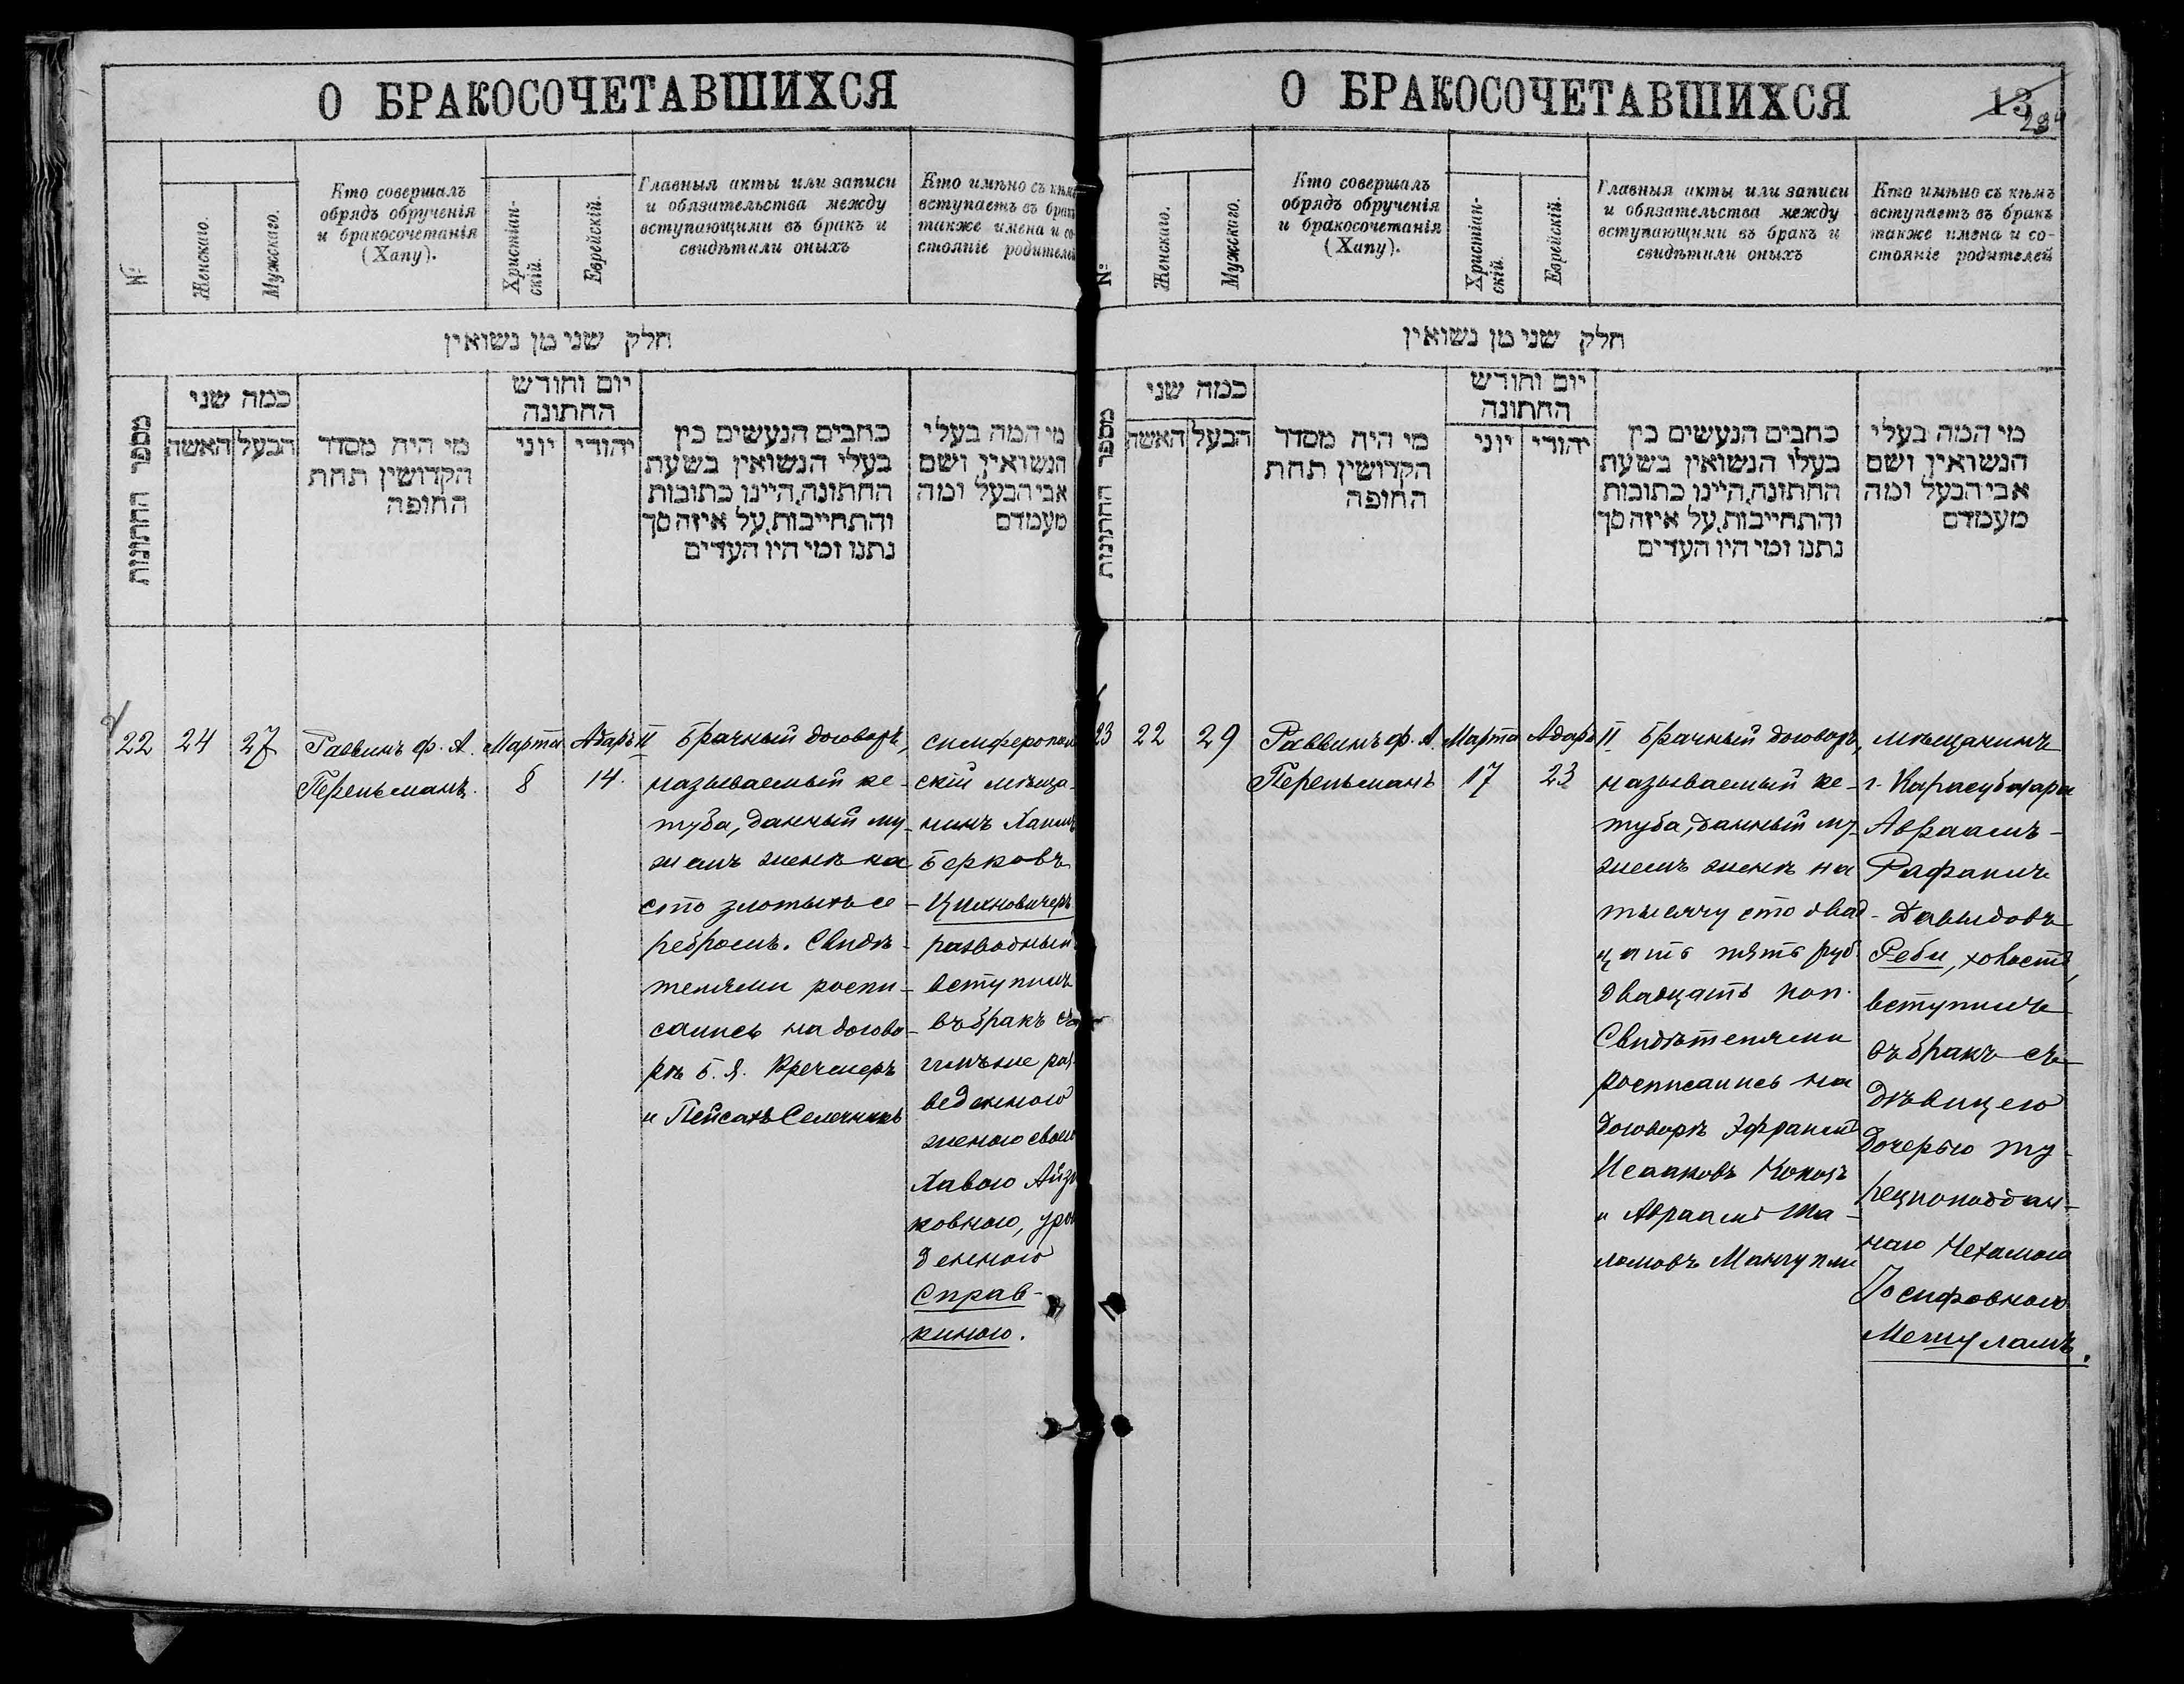 О БРАКОСОЧЕТАВШИХСЯ
№
Женскаго.
Мужскаго.
Кто совершалъ
обрядъ обрученія
и бракосочетанія
(Хапу).
Христіан-
скій.
Еврейскій.
Главныя акты или записи
и обязательства между
вступающими въ бракъ и
свидѣтили оныхъ
Кто имѣно съ кѣмъ
вступаетъ въ бракъ
также имена и со-
стояніе родителей
חלק שני מן נשואין
מספר החתונות
כמה שני
האשה
הבעל
מי היה מסדר
הקדושין תחת
החופה
יום וחודש
החתונה
יוני
יהודי
כתבים הנעשים בין
בעלי הנשואין בשעת
החתונה, היינו כתובות
והתחייבות, על איזה סך
נתנו ומי היו העדים
מי המה בעלי
הנשואין ושם
אבי הבעל ומה
מעמדם
22
24
27
Раввинъ Ф. А.
Перельманъ.
Марта
8
Адаръ II
14.
Брачный договоръ,
называемый ке-
туба, данный му-
жемъ женѣ на
сто злотыхъ се-
ребромъ. Свидѣ-
телями роспи-
сались на догово-
рѣ Б. Я. Кречмеръ
и Пейсахъ
симферополь
скій мѣща-
нинъ Хаимъ
Берковъ
Цихновичеръ
разводный
вступилъ
въ бракъ съ
раз-
веденною
женою своею
Хавою Айзи
ковною, урож
денною
Справ-
киною.
О БРАКОСОЧЕТАВШИХСЯ
13
234
№
Женскаго.
Мужскаго.
Кто совершалъ
обрядъ обрученія
и бракосочетанія
(Хапу).
Христіан-
скій.
Еврейскій.
Главныя акты или записи
и обязательства между
вступающими въ бракъ и
свидѣтили оныхъ
Кто имѣно съ кѣмъ
вступаетъ въ бракъ
также имена и со-
стояніе родителей
חלק שני מן נשואין
מספר החתונות
כמה שני
האשה
הבעל
מי היה מסדר
הקדושין תחת
החופה
יום וחודש
החתונה
יוני
יהודי
כתבים הנעשים בין
בעלו הנשואין בשעת
החתונה, היינו כתובות
והתחייבות, על איזה סך
נתנו ומי היו העדים
מי המה בעלי
הנשואין ושם
אבי הבעל ומה
מעמדם
23
22
29
Раввинъ Ф. А.
Перельманъ
Марта
17
Адаръ II
23
Брачный договоръ,
называемый ке-
туба, данный му-
жемъ женѣ на
тысячу сто двад-
цать пять руб.
двадцать коп.
Свидѣтелями
росписались на
договорѣ Эфраимъ
Исааковъ Кокозъ
и Авраамъ Ша-
ломовъ Мангупли
мѣщанинъ
г. Карасубазара
Авраамъ-
Рафаилъ
Давидовъ
Реби, холостъ,
вступилъ
въ бракъ съ
дѣвицею
дочерью ту-
рецкоподдан-
наго Нехамою
Іосифовною
Мешуламъ.